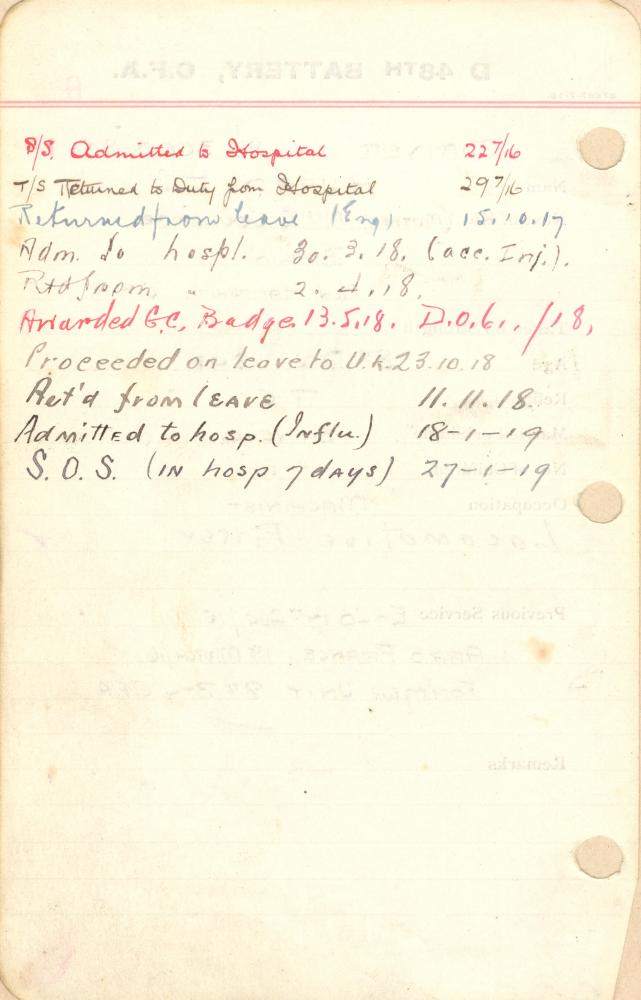 B/S. Admitted to Hospital 22 7/16
T/S Returned to Duty from Hospital 29 7/16
Returned from leave (Eng) 15.10.17
Adm. To hospl. 30.3.18. (acc. Inj.).
Rtd from " 2.4.18.
Awarded G.C. Badge. 13.5.18. D.O. 61../18,
Proceeded on leave to U.K. 23.10.18
Ret'd from LEAVE 11.11.18.
Admitted to hosp. (Influ.) 18-1-19
S.O.S. (IN hosp 7 days) 27-1-19